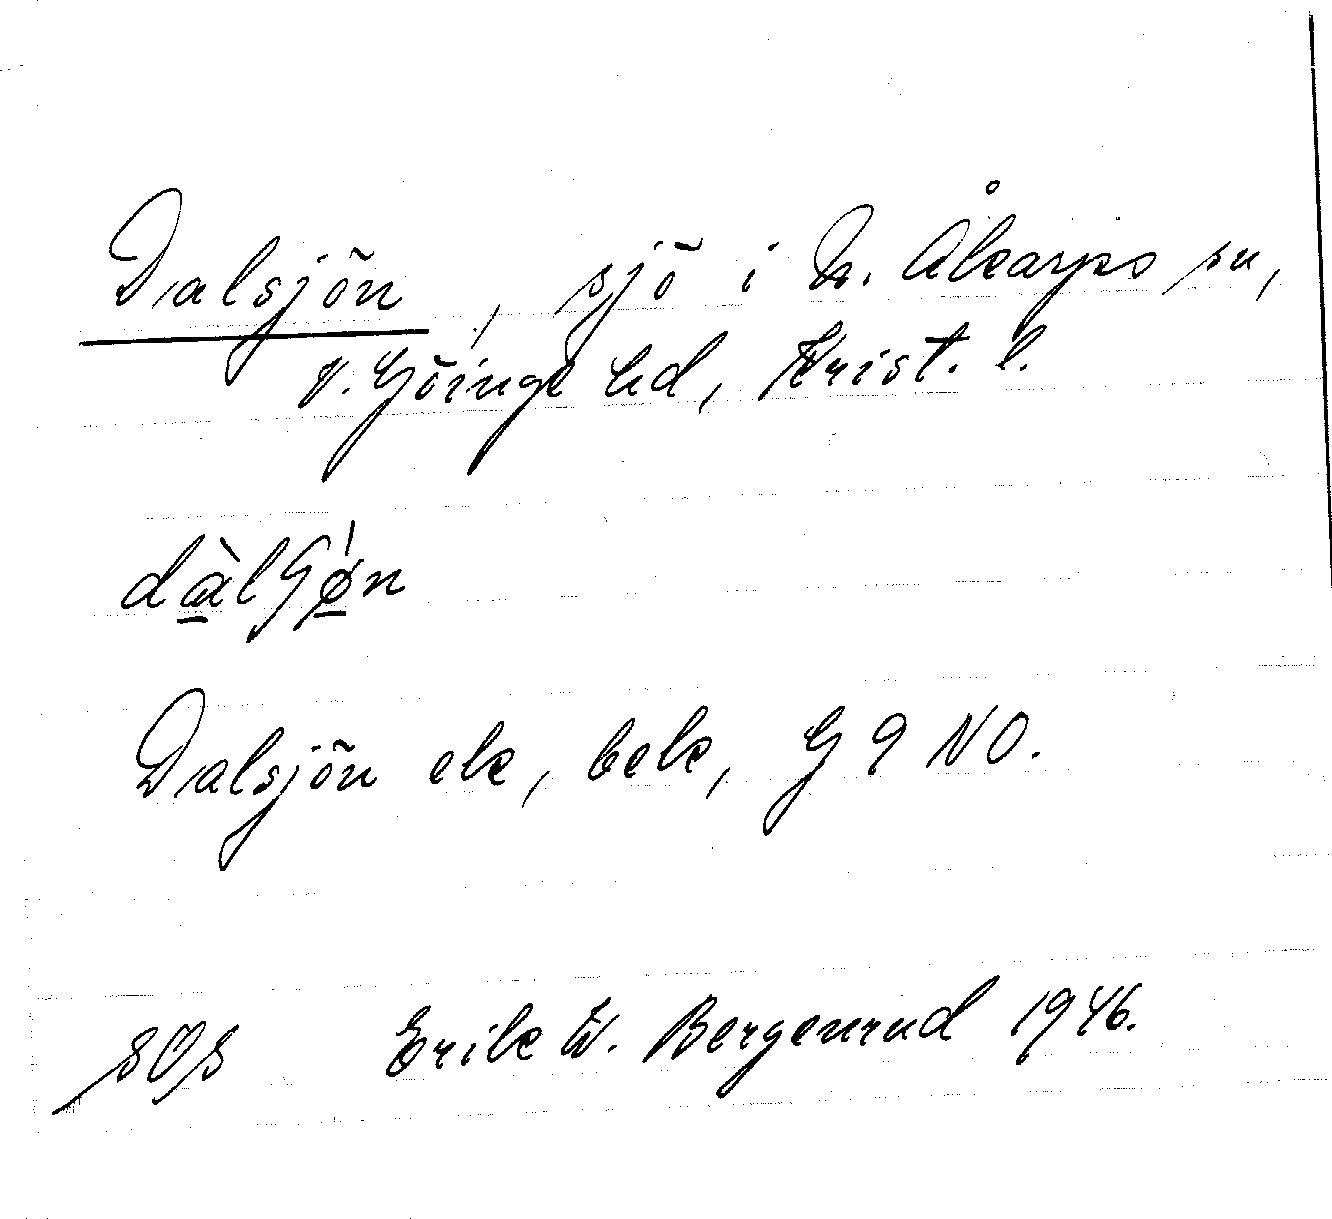 Dalsjön, sjö i N. Åkarps sn,
V. Göinge hd, Krist. l.
Dalsjön ek, bebk, G 9 NO.
SOS Erik W. Bergenrud 1946.